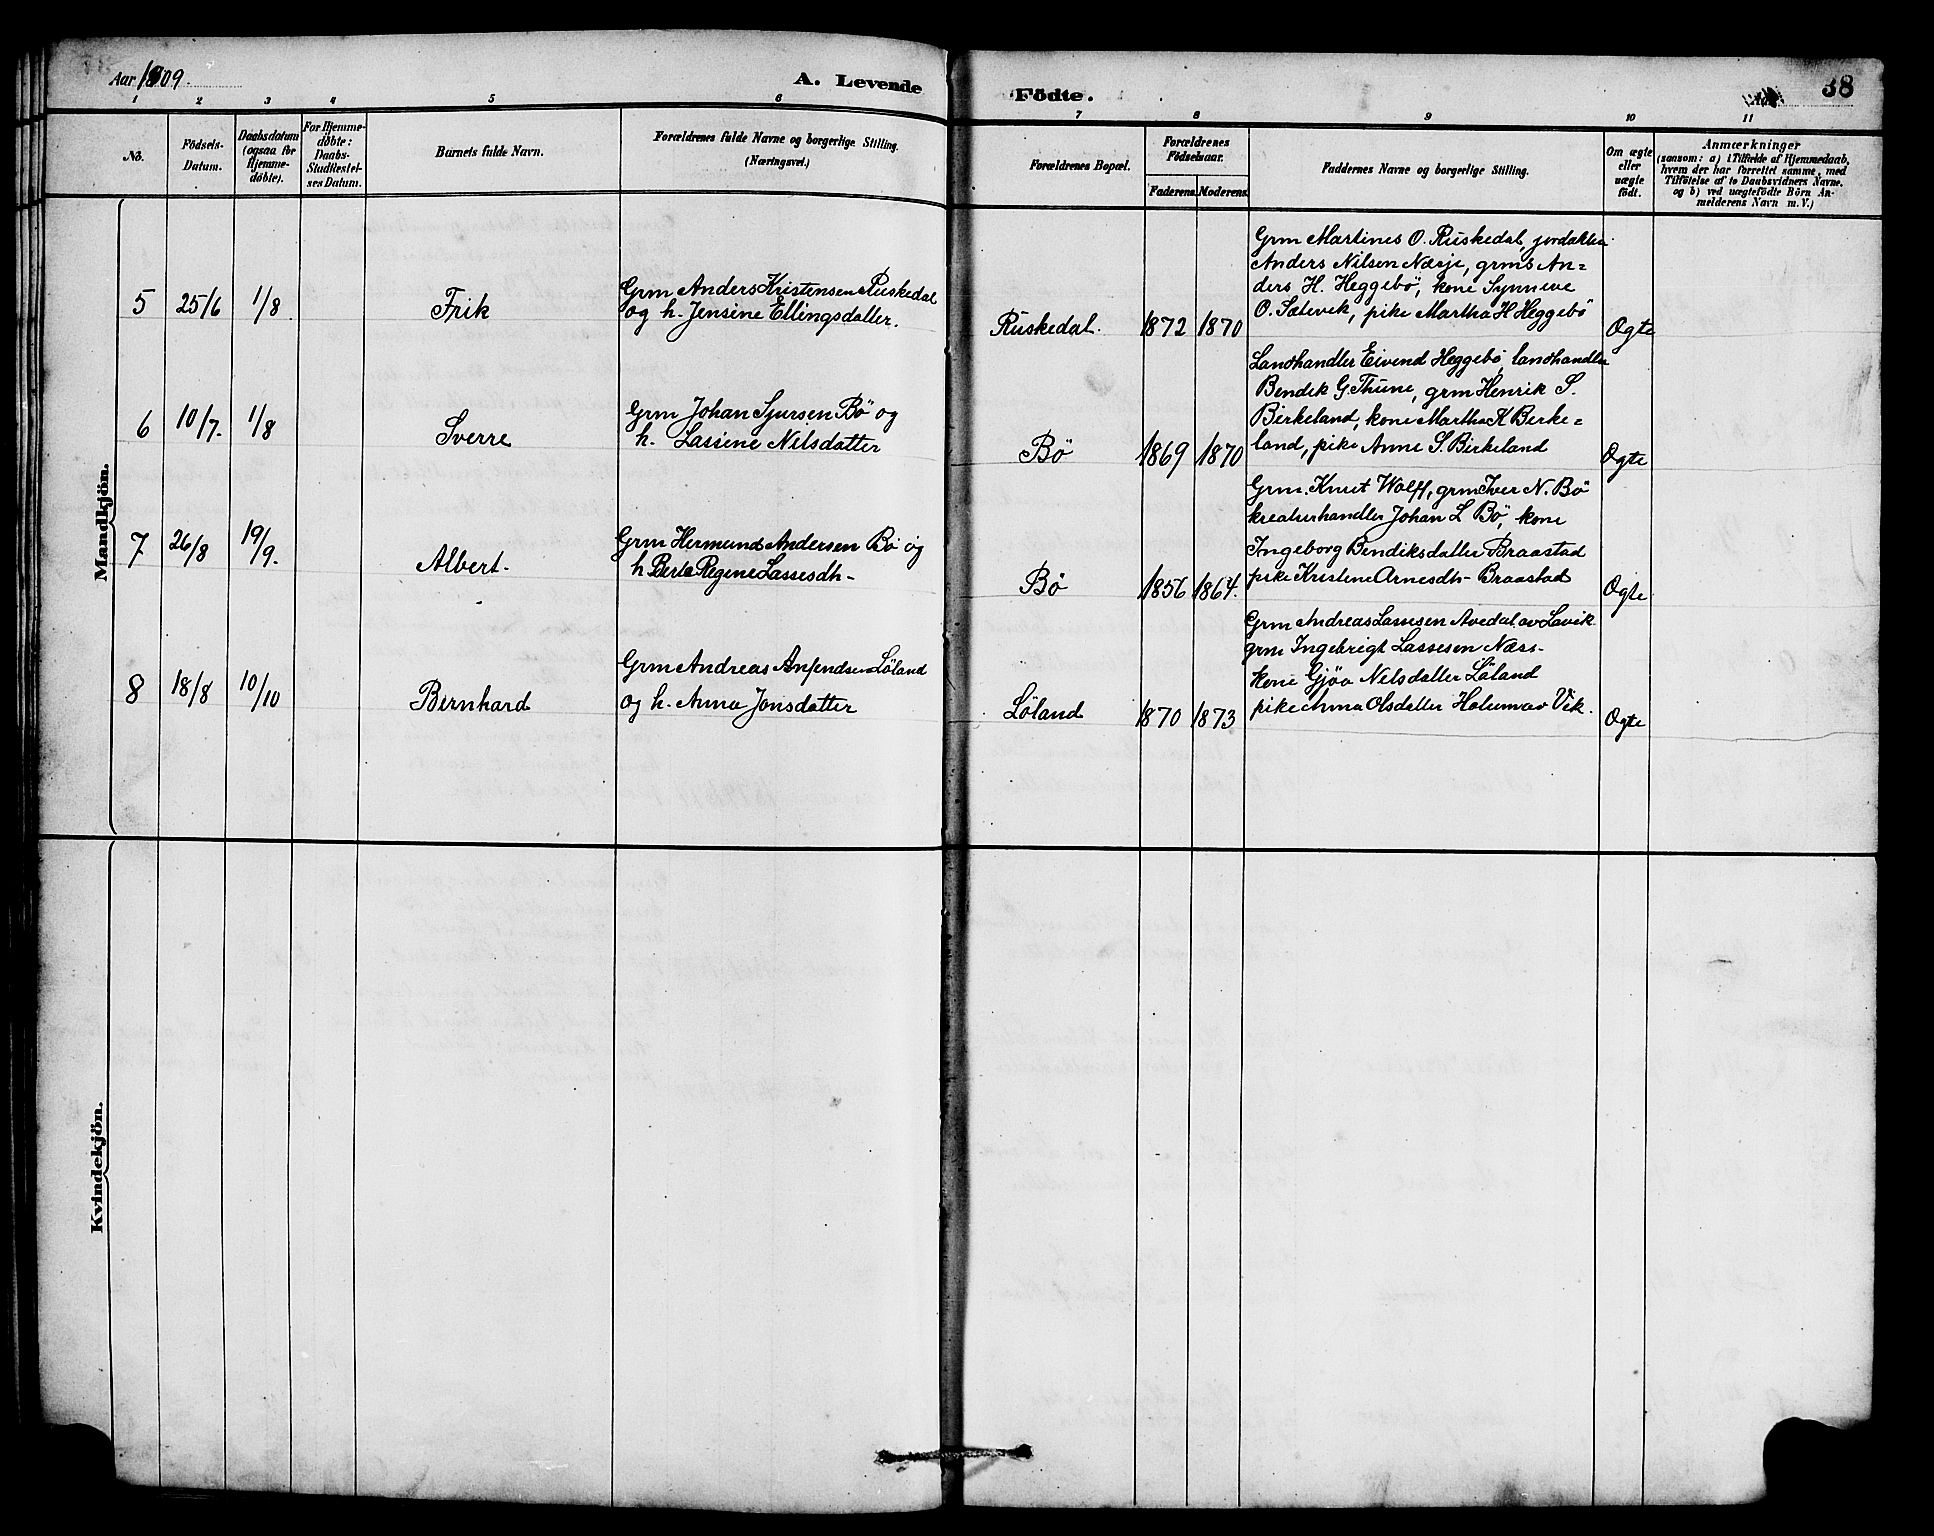 Aar 1909.
A. Levende
Födte.
38
1 2 3 4 5 6 7 8 9 10 11
No.
Födsels-
Datum.
Daabsdatum
(ogsaa for
Hjemme-
döbte).
For Hjemme-
döbte:
Daabs-
Stadfæstel-
ses Datum.
Barnets fulde Navn.
Forældrenes fulde Navne og borgerlige Stilling.
(Næringsvei.)
Forældrenes Bopæl.
Forældrenes
Födselsaar.
Faderens. Moderens.
Faddernes Navne og borgerlige Stilling.
Om ægte
eller
uægte
født.
Anmærkninger
(saasom: a) i Tilfælde af Hjemmedaab,
hvem der har forrettet samme, med
Tilföielse af to Daabsvidners Navne.
og b) ved uægtefödte Börn An-
melderens Navn m. V.)
Mandkjön.
5 25/6 1/8 Frik
Grm Anders Kristensen Ruskedal
og h. Jensine Ellingsdatter.
Ruskedal. 1872 1870
Grm Martines O. Ruskedal, jordakker
Anders Nilsen Næsje, grms An=
ders H. Heggebö, kone Synneve
O. Sætevik, pike Martha H Heggebö
Ægte
6 10/7. 1/8 Sverre
Grm Johan Sjursen Bö og
h. Lassine Nilsdatter
Bö 1869 1870
Landhandler Eivend Heggebö, landhandler
Bendik G. Thune, grm Henrik S.
Birkeland, kone Martha K Birke=
land, pike Anne S. Birkeland
Ægte
7 26/8 19/9. Albert-
Grm Hermund Andersen Bö og
h Berte Regine Lassesdtr-
Bö 1856 1864.
Grm. Knut Wolff, grm Iver N. Bö
kreaturhandler Johan L Bö, kone
Ingeborg Bendiksdatter Braastad
pike Kristine Arnesdtr- Braastad
Ægte
8 18/8 10/10 Bernhard
Grm Andreas Anfendsen Löland
og h. Anna Jonsdatter
Löland 1870 1873
Grm Andreas Lassesen Avedal av Lavik
grm Ingebrigt Lassesen Næss-
kone Gjöa Nilsdatter Löland
pike Anna Olsdatter Holum av Vik.
Ægte
Kvindekjön.